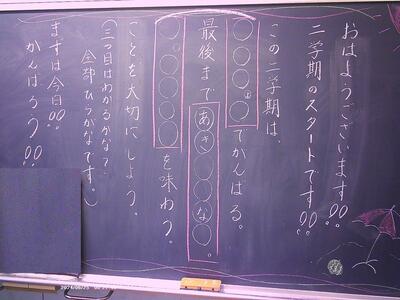 おはようございます!!
二学期のスタートです!!
この二学期は、
○○○○でがんばる。
最後まであき○○な○。
○○○○○を味わう。
ことを大切にしよう。
(三つ目はわかるかな?
全部ひらがなです。)
まずは今日!!
がんばろう!!